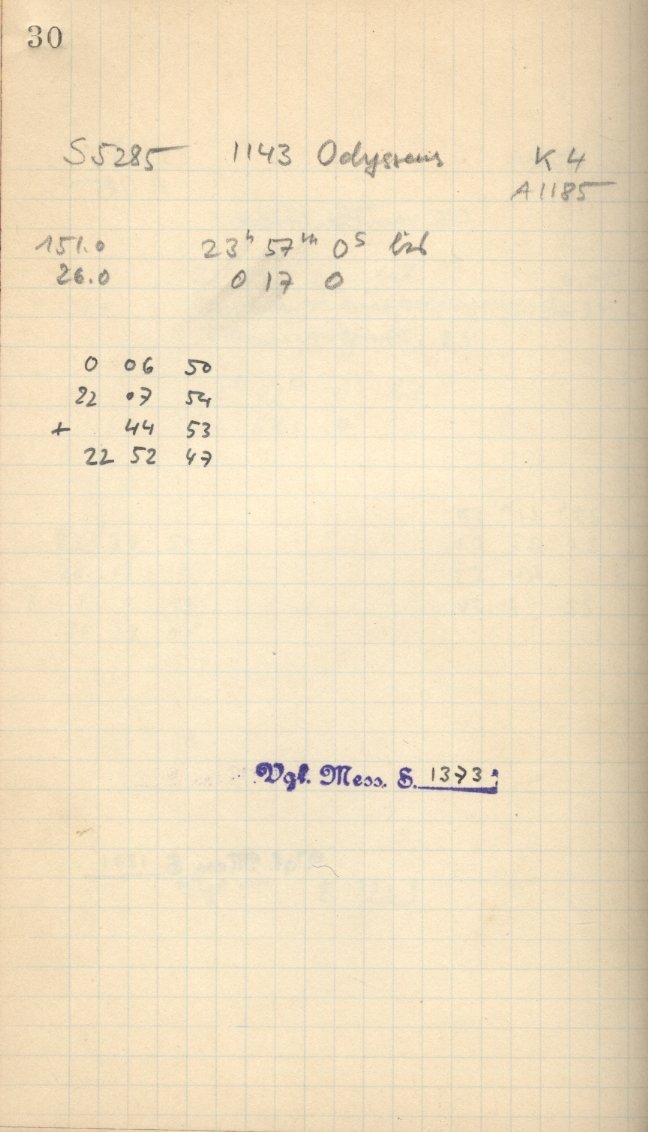 30
S 5285 1143 Odysseus K 4
A 1185
151.0 23h 57m 0s
26.0 0 17 0
0 06 50
22 07 54
+ 44 53
22 52 47
Vgl. Mess. S. 1373